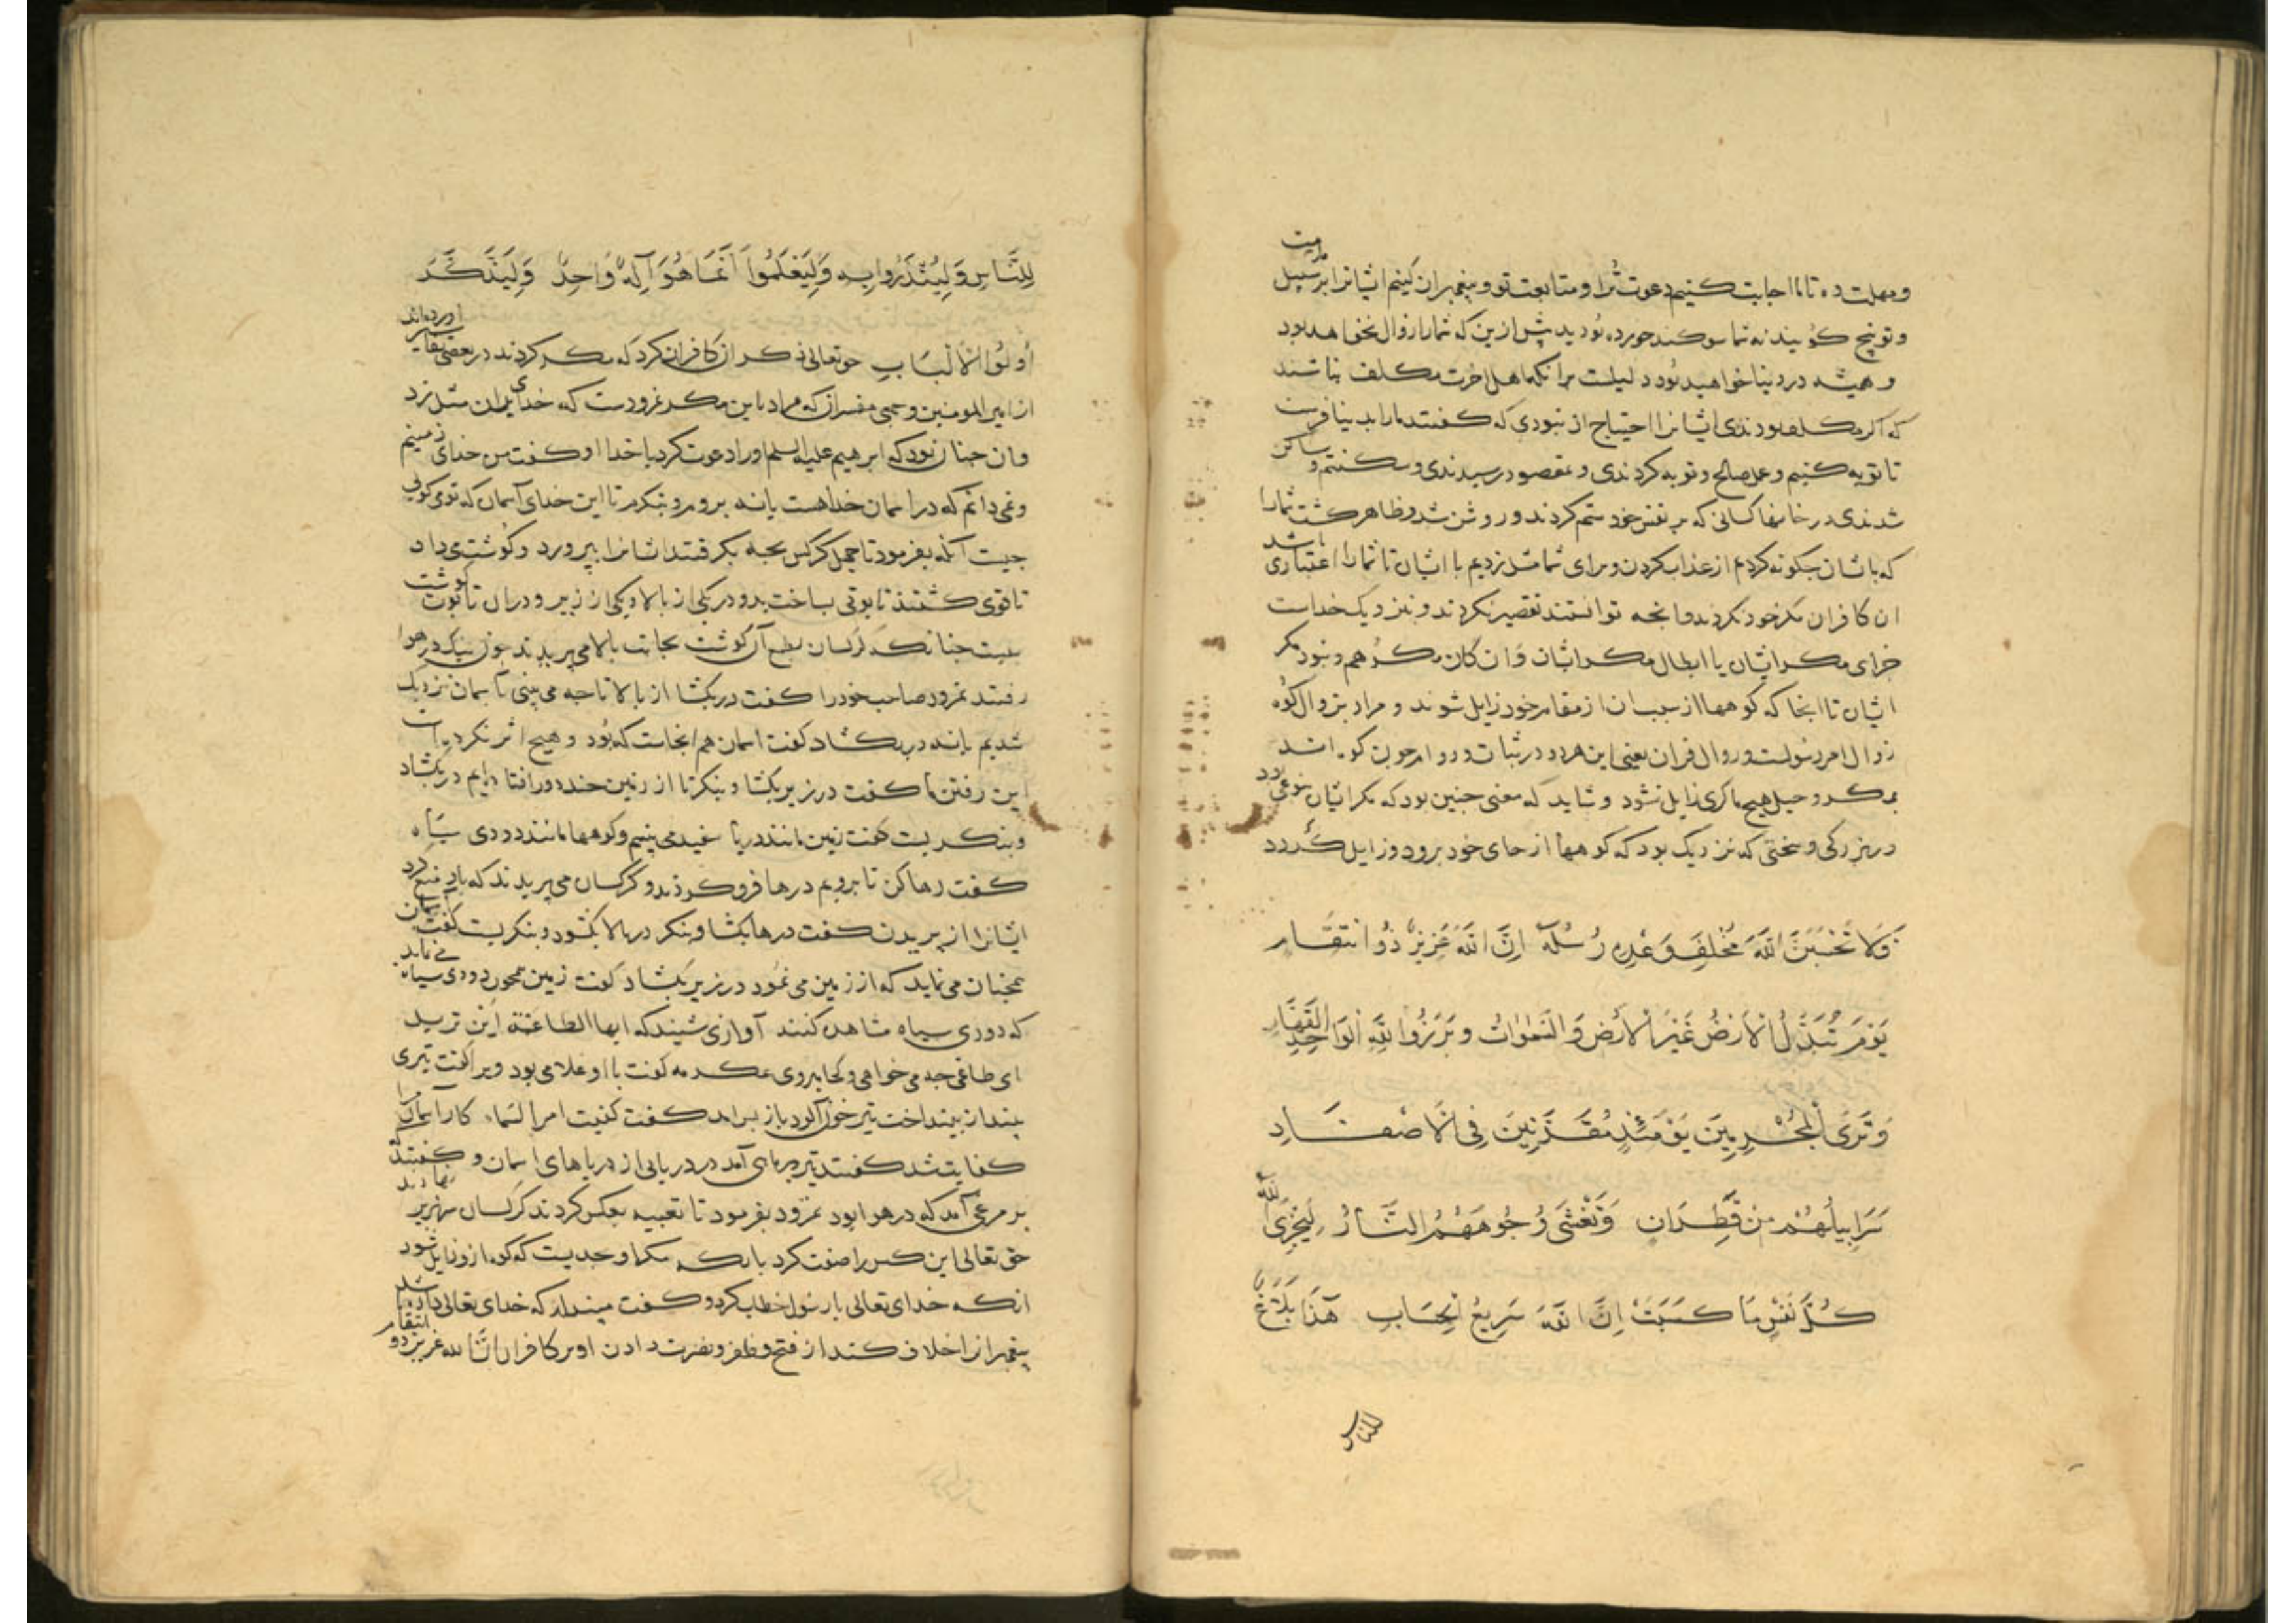 ومهلت ده تا ما اجابت کنیم دعوت ترا و متابعت تو و پیغمبران کنیم ایشانرا بر سبیل
و توبیخ کویند نه شما سوکند خورده بودید پیش ازین که شما را زوال نخواهد بود
و همیشه در دنیا خواهید بود دلیلست برانکه اهل اخرت مکلف نباشند
که اکر مکلف بودندی ایشانرا احتیاج از نبودی که کفتند ما را بدنیا فرست
تا توبه کنیم و عمل صالح و توبه کردندی و مقصود رسیدندی وسکنتم و ساکن
شدندی در خانها کسانی که بر نفس خود ستم کردند و روشن شد و ظاهر کشت شما را
که باشان چکونه کردم از عذاب کردن و برای شما مثل زدیم با ایشان تا شما را اعتباری باشد
ان کافران مکر خود بکردند و انچه توانستند تقصیر نکردند و نزدیک خداست
جزای مکر ایشان یا ابطال مکر ایشان وان کان مکرهم و نبود مکر
ایشان تا انجا که کوهها از سبب ان از مقام خود زایل شوند و مراد بزوال کوه
زوال امر رسولست و زوال قران یعنی این هردو در ثبات و دوام چون کوه اند
بمکر و حیل هیچ ماکری زایل نشود و شاید که معنی چنین بود که مکر ایشان بنوعی بود
در بزرکی و سختی که نزدیک بود که کوهها از جای خود برود و زایل کردد
فَلَا تَحْسَبَنَّ اللَّهَ مُخْلِفَ وَعْدِهِ رُسُلَهُ اِنَّ اللَّهَ عَزِيزٌ ذُو انتِقَامٍ
يَوْمَ تُبَدَّلُ الْاَرْضُ غَيْرَ الْاَرْضِ وَالسَّمٰوَاتُ وَبَرَزُوا لِلَّهِ الْوَاحِدِ الْقَهَّارِ
وَتَرَى الْمُجْرِمِينَ يَوْمَئِذٍ مُقَرَّنِينَ فِى الْاَصْفَادِ
سَرَابِيلُهُمْ مِنْ قَطِرَانٍ وَتَغْشَى وُجُوهَهُمُ النَّارُ لِيَجْزِىَ اللَّهُ
كُلَّ نَفْسٍ مَا كَسَبَتْ اِنَّ اللَّهَ سَرِيعُ الْحِسَابِ هَذَا بَلَاغٌ
للناس
لِلنَّاسِ وَلِيُنْذَرُوا بِهِ وَلِيَعْلَمُوا اَنَّمَا هُوَ اِلَهٌ وَاحِدٌ وَلِيَذَّكَّرَ
اُولُوا الْاَلْبَابِ حق تعالی ذکر از کافران کرد که مکر کردند در بعضی تفاسیر اورده اند
از امیر المومنین و جمعی مفسران که مراد باین مکر نمرودست که خدای بران مثل زد
و ان چنان بود که ابرهیم علیه السلم او را دعوت کرد با خدا او کفت من خدای زمینم
و نمی دانم که در اسمان خدا هست یا نه بروم و بنکرم تا این خدای آسمان که تو می کویی
چیست آنکه بفرمود تا چهل کرکس بچه بکرفتند ایشانرا بپرورد و کوشت می داد
تا قوی کشتند تابوتی بساخت بدو در یکی از بالا و یکی از زیر و دران تابوت کوشت
ببست چنانکه کرکسان بطمع آن کوشت بجانب بالا می پریدند چون نیک در هوا
رفتند نمرود صاحب خود را کفت در بکشا از بالا تا چه می بینی تا بآسمان نزدیک
شدیم یا نه در بکشاد کفت اسمان هم انجاست که بود و هیچ اثر نکرده است
این رفتن ما کفت در زیر بکشا و بنکر تا از زمین چند دور افتاده ایم در بکشاد
و بنکریست کفت زمین مانند دریا سفید می بینم و کوهها مانند دودی سیاه
کفت رها کن تا برویم درها فرو کردند و کرکسان می پریدند که باد منع کرد
ایشانرا از پریدن کفت درها بکشا و بنکر در بالا بکشود و بنکریست کفت آسمان
همچنان می نماید که از زمین می نمود در زیر بکشاد کفت زمین همچون دودی سیاه می نماید
که دودی سیاه مشاهده کنند آوازی شنیدند که ایها الطاغیة این ترید
ای طاغی چه می خواهی و کجا میروی عکرمه کفت با او غلامی بود ویرا کفت تیری
بینداز بینداخت تیر خون آلود باز برآمد کفت کفیت امر السماء کار آسمان را
کفایت شد کفتند تیر بر ماهی آمد در دریایی از دریاهای اسمان و کفتند که
بر مرغی آمد که در هوا بود نمرود بفرمود تا تعبیه بعکس کردند کرکسان سر بزیر نهادند
حق تعالی این کس را صفت کرد بانکه مکر او بحدیست که کوه ازو زایل شود
انکه خدای تعالی با رسول خطاب کرد و کفت مپندار که خدای تعالی
پیغمبرانرا خلاف کند از فتح و ظفر و نصرت دادن او بر کافران ان الله عزیز ذو انتقام